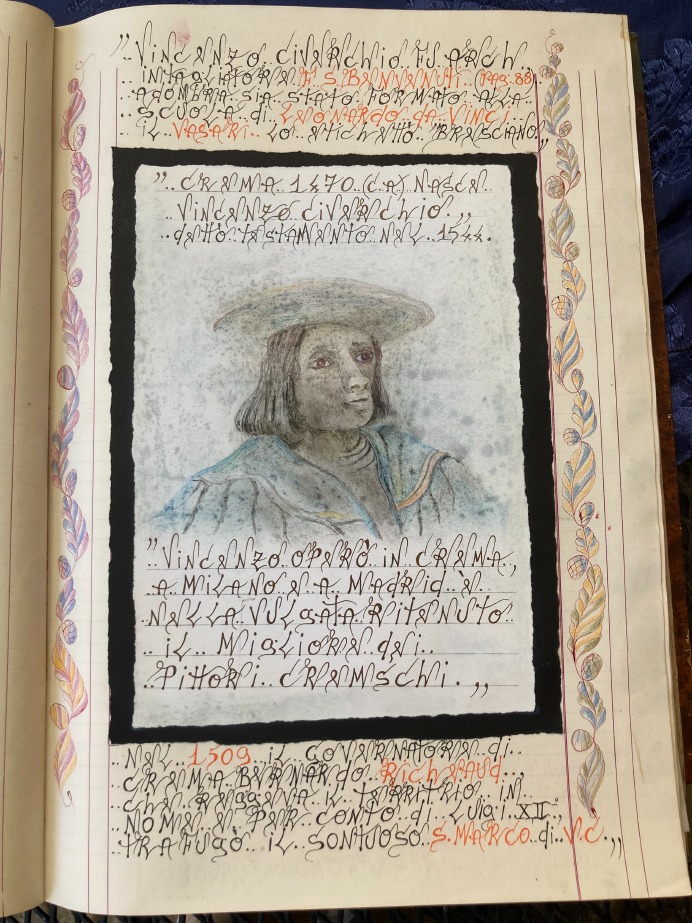 "Vincenzo Civerchio fu arch.,
intagliatore F.S. Benvenuti.. (Pag. 88)..
adombra sia stato formato alla..
scuola di.. Leonardo da Vinci..
.. il.. Vasari.. lo etichettò "Bresciano.."
".. Crema 1470 (c.a) nasce..
Vincenzo Civerchio..,,
.. dettò testamento nel.. 1544.
"Vincenzo operò in Crema,
a Milano e a Madrid.. è..
nella vulgata ritenuto..
.. il.. migliore dei..
.. pittori.. cremaschi.,,
Nel.. 1509.. il governatore di..
Crema Bernardo Richeaud...,
che reggeva il territrio in..
nome e per conto di Luigi XII..,
trafugò il sontuoso S. Marco di V.C.,,